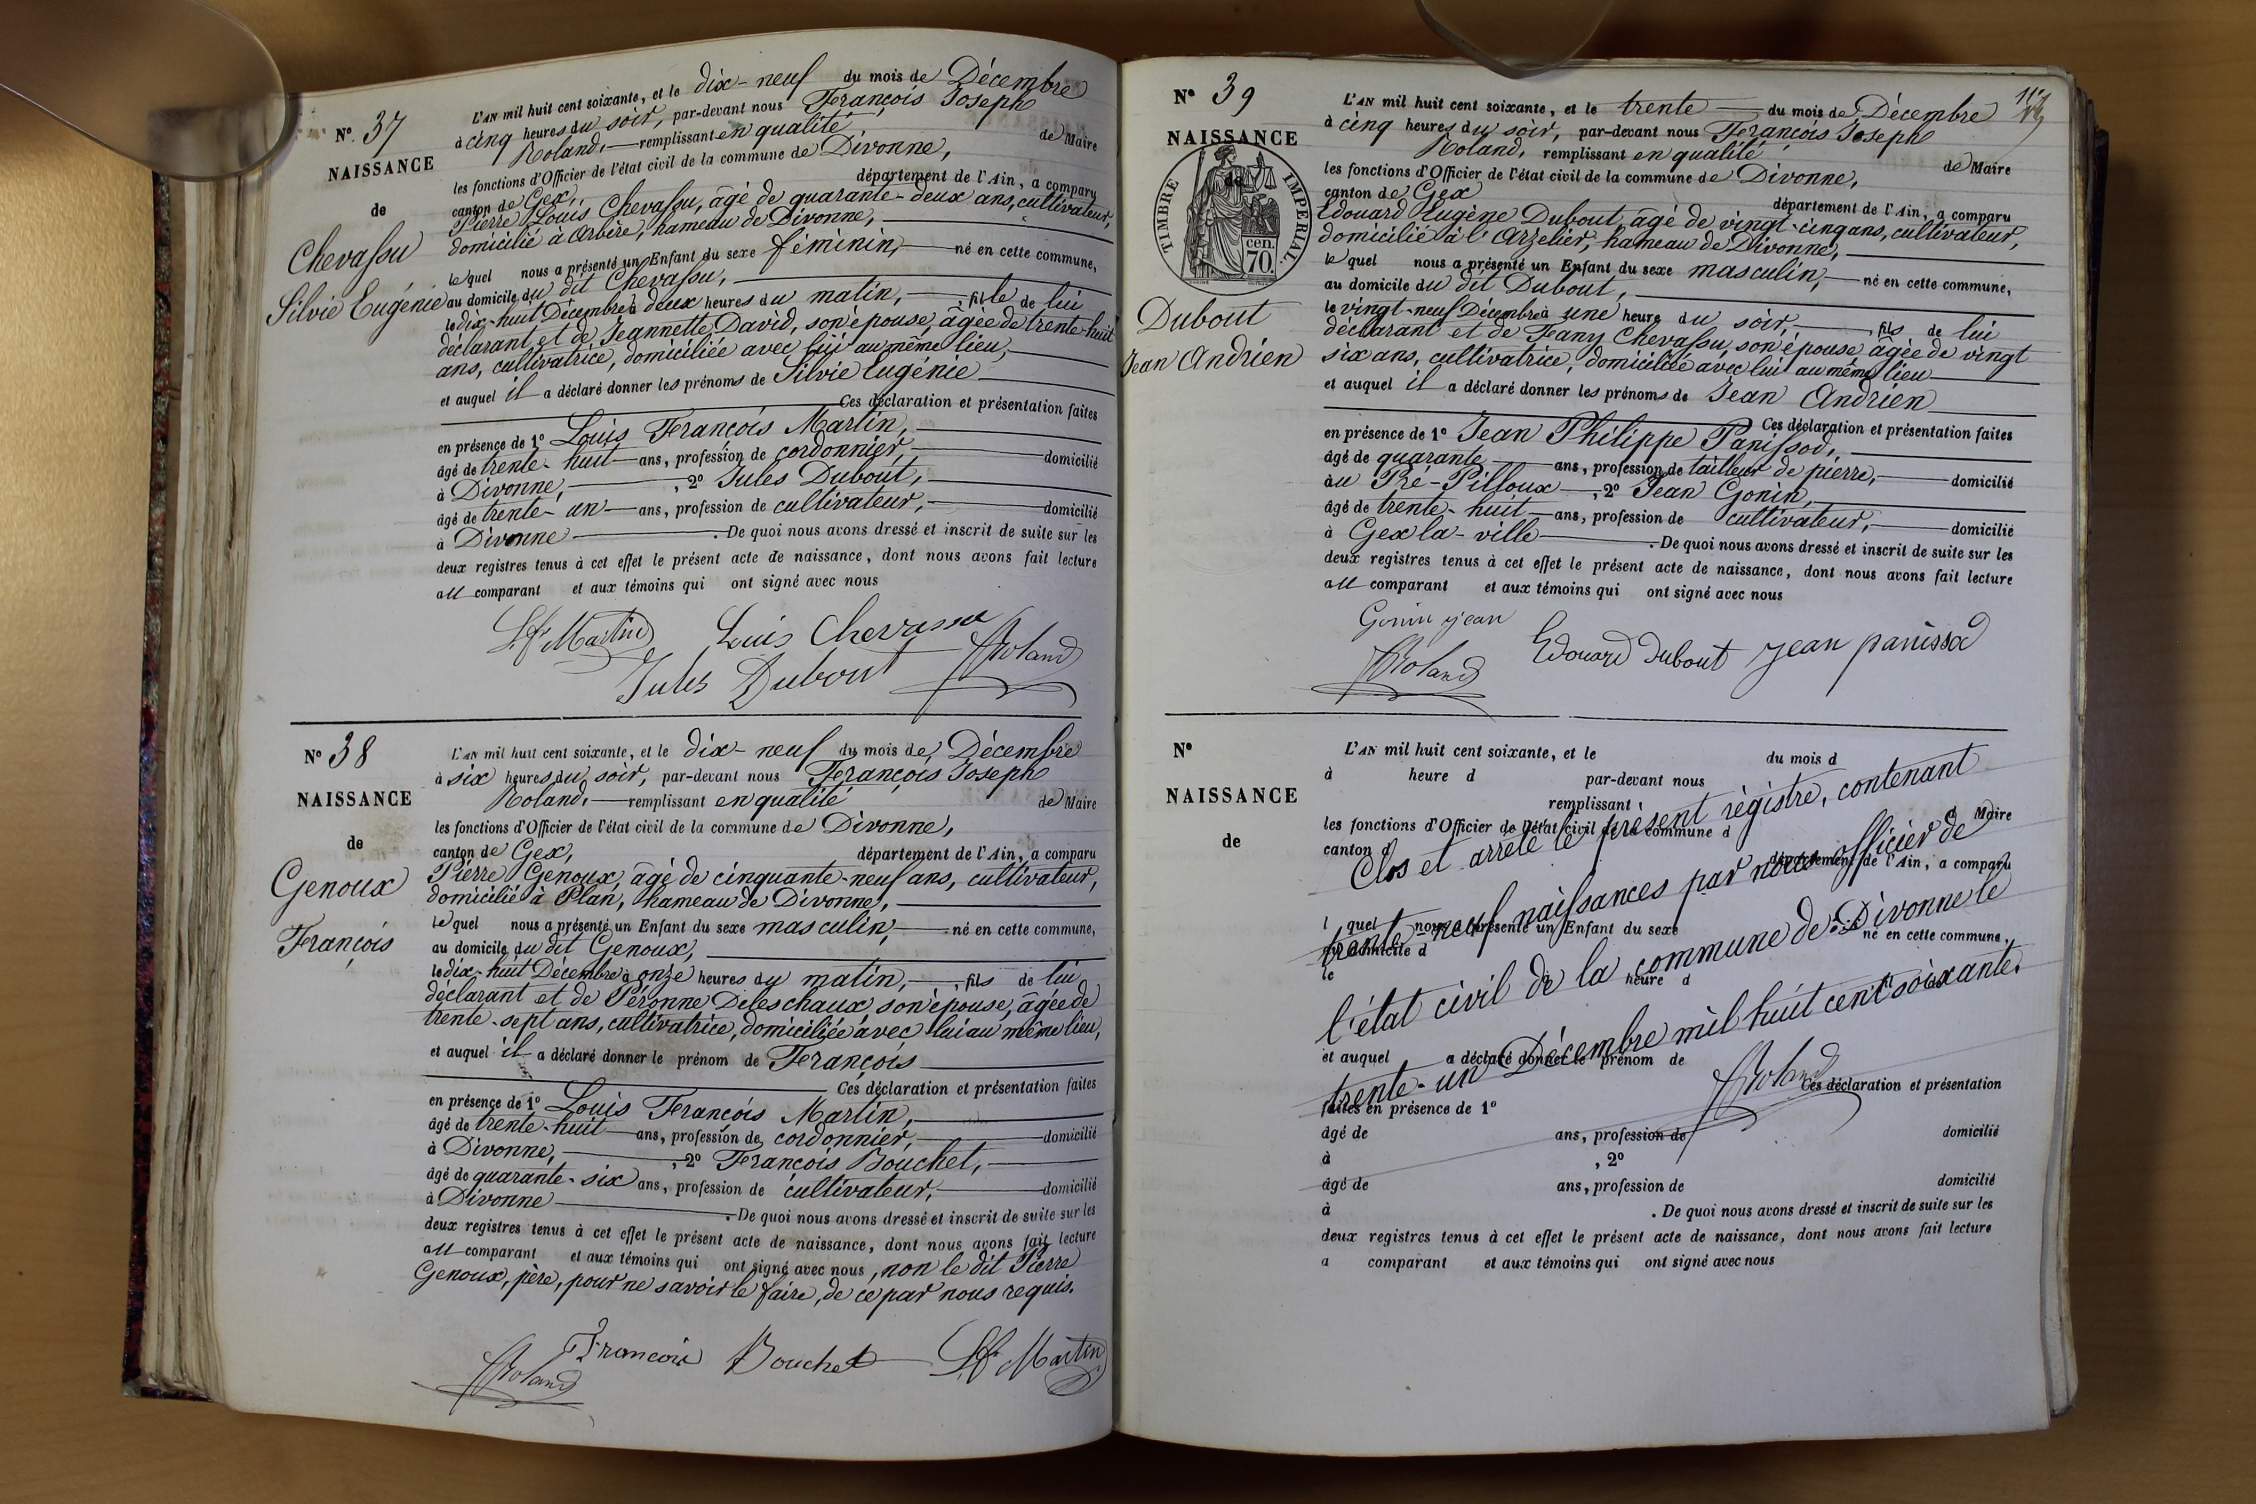 N°. 37
NAISSANCE
de
Chevassu
Silvie Eugénie
L'AN mil huit cent soixante, et le dix-neuf du mois de Décembre
à cinq heures du soir, par-devant nous François Joseph
Roland, remplissant en qualité de Maire
les fonctions d'Officier de l'état civil de la commune de Divonne,
canton de Gex, département de l'Ain, a comparu
Pierre Louis Chevassu, âgé de quarante-deux ans, cultivateur,
domicilié à Arbère, hameau de Divonne,
lequel nous a présenté un Enfant du sexe féminin, né en cette commune,
au domicile du dit Chevassu,
le dix-huit Décembre à deux heures du matin, fille de lui
déclarant et de Jeannette David, son épouse, âgée de trente-huit
ans, cultivatrice, domiciliée avec lui au même lieu,
et auquel il a déclaré donner les prénoms de Silvie Eugénie
Ces déclaration et présentation faites
en présence de 1° Louis François Martin,
âgé de trente-huit ans, profession de cordonnier, domicilié
à Divonne, , 2° Jules Dubout,
âgé de trente-un ans, profession de cultivateur, domicilié
à Divonne . De quoi nous avons dressé et inscrit de suite sur les
deux registres tenus à cet effet le présent acte de naissance, dont nous avons fait lecture
au comparant et aux témoins qui ont signé avec nous
L. fs Martin Louis Chevassu
Jules Dubout fRoland
N° 38
NAISSANCE
de
Genoux
François
L'AN mil huit cent soixante, et le dix-neuf du mois de Décembre
à six heures du soir, par-devant nous François Joseph
Roland, remplissant en qualité de Maire
les fonctions d'Officier de l'état civil de la commune de Divonne,
canton de Gex, département de l'Ain, a comparu
Pierre Genoux, âgé de cinquante-neuf ans, cultivateur,
domicilié à Plan, hameau de Divonne,
lequel nous a présenté un Enfant du sexe masculin, né en cette commune,
au domicile du dit Genoux,
le dix-huit Décembre à onze heures du matin, , fils de lui
déclarant et de Péronne Deleschaux, son épouse, âgée de
trente-sept ans, cultivatrice, domiciliée avec lui au même lieu,
et auquel il a déclaré donner le prénom de François
Ces déclaration et présentation faites
en présence de 1° Louis François Martin,
âgé de trente-huit ans, profession de cordonnier, domicilié
à Divonne, , 2° François Bouchet,
âgé de quarante-six ans, profession de cultivateur, domicilié
à Divonne . De quoi nous avons dressé et inscrit de suite sur les
deux registres tenus à cet effet le présent acte de naissance, dont nous avons fait lecture
au comparant et aux témoins qui ont signé avec nous, non le dit Pierre
Genoux, père, pour ne savoir le faire, de ce par nous requis.
François Bouchet L. fs Martin
fRoland
N° 39
NAISSANCE
de
TIMBRE IMPERIAL
70 cen.
Dubout
Jean Andrien
L'AN mil huit cent soixante, et le trente du mois de Décembre
à cinq heures du soir, par-devant nous François Joseph
Roland, remplissant en qualité de Maire
les fonctions d'Officier de l'état civil de la commune de Divonne,
canton de Gex département de l'Ain, a comparu
Edouard Eugène Dubout, âgé de vingt-cinq ans, cultivateur,
domicilié à l'Arzelier, hameau de Divonne,
lequel nous a présenté un Enfant du sexe masculin, né en cette commune,
au domicile du dit Dubout,
le vingt-neuf Décembre à une heure du soir, , fils de lui
déclarant et de Fany Chevassu, son épouse âgée de vingt
six ans, cultivatrice, domiciliée avec lui au même lieu
et auquel il a déclaré donner les prénoms de Jean Andrien
Ces déclaration et présentation faites
en présence de 1° Jean Philippe Panissod,
âgé de quarante ans, profession de tailleur de pierre, domicilié
au Pré-Pilloux , 2° Jean Gonin,
âgé de trente-huit ans, profession de cultivateur, domicilié
à Gex la-ville . De quoi nous avons dressé et inscrit de suite sur les
deux registres tenus à cet effet le présent acte de naissance, dont nous avons fait lecture
au comparant et aux témoins qui ont signé avec nous
Gonin jean
fRoland Edouard Dubout jean panissod
N°
NAISSANCE
de
L'AN mil huit cent soixante, et le du mois d
à heure d par-devant nous
remplissant d Maire
les fonctions d'Officier de l'état civil de la commune d
canton d département de l'Ain, a comparu
l quel nous a présenté un Enfant du sexe né en cette commune,
au domicile d
le heure d
et auquel a déclaré donner le prénom de
Ces déclaration et présentation
faites en présence de 1°
âgé de ans, profession de domicilié
à , 2°
âgé de ans, profession de domicilié
à . De quoi nous avons dressé et inscrit de suite sur les
deux registres tenus à cet effet le présent acte de naissance, dont nous avons fait lecture
a comparant et aux témoins qui ont signé avec nous
Clos et arrêté le présent régistre, contenant
trente-neuf naissances par nous officier de
l'état civil de la commune de Divonne le
trente-un Décembre mil huit cent soixante.
fRoland